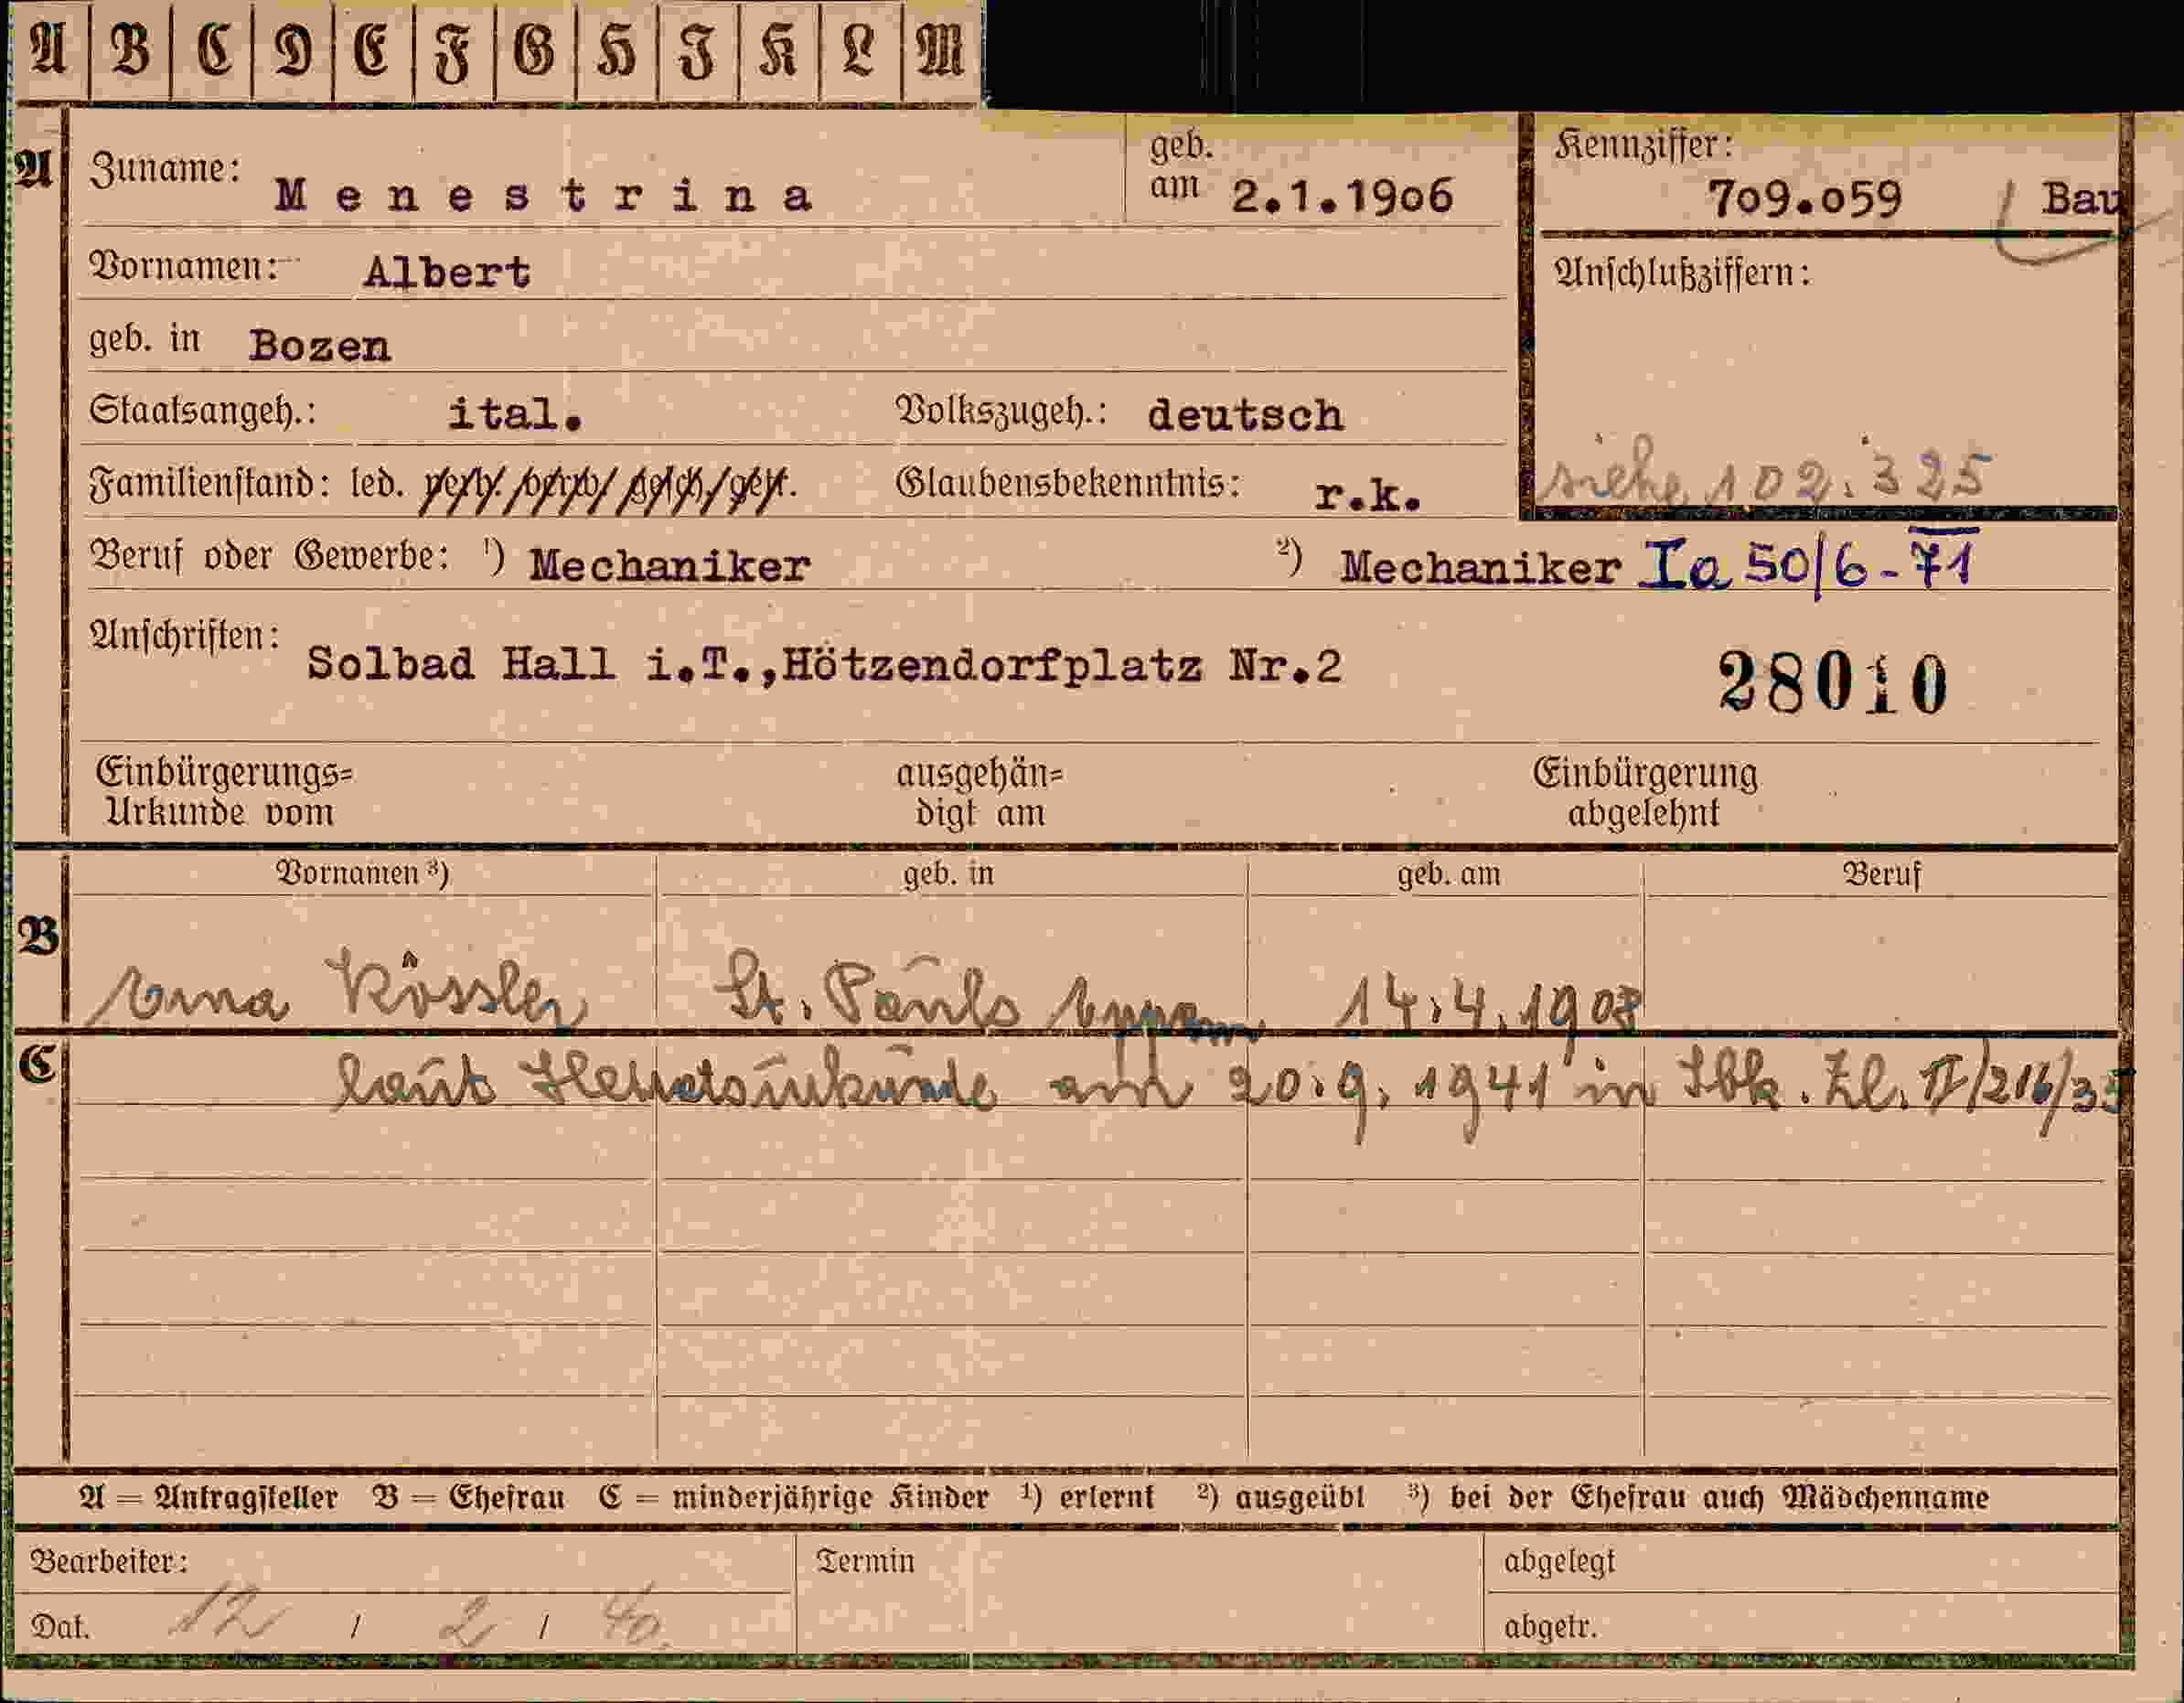 A B C D E F G H J K L M
A Zuname: Menestrina geb. am 2.1.1906 Kennziffer: 709.059 Bau
Vornamen: Albert Anschlußziffern:
geb. in Bozen
Staatsangeh.: ital. Volkszugeh.: deutsch
Familienstand: led. verh. verw. gesch. get. Glaubensbekenntnis: r.k. siehe 102.325
Beruf oder Gewerbe: ¹) Mechaniker ²) Mechaniker Ia 50/6-71
Anschriften: Solbad Hall i.T.,Hötzendorfplatz Nr.2 28010
Einbürgerungs= ausgehän= Einbürgerung
Urkunde vom digt am abgelehnt
Vornamen ³) geb. in geb. am Beruf
B Anna Kössler St. Pauls Eppan 14.4.1908
C laut Heiratsurkunde am 20.9.1941 in Ibk. Zl. II/216/35
A = Antragsteller B = Ehefrau C = minderjährige Kinder ¹) erlernt ²) ausgeübt ³) bei der Ehefrau auch Mädchenname
Bearbeiter: Termin abgelegt
Dat. 12 / 2 / 40. abgetr.